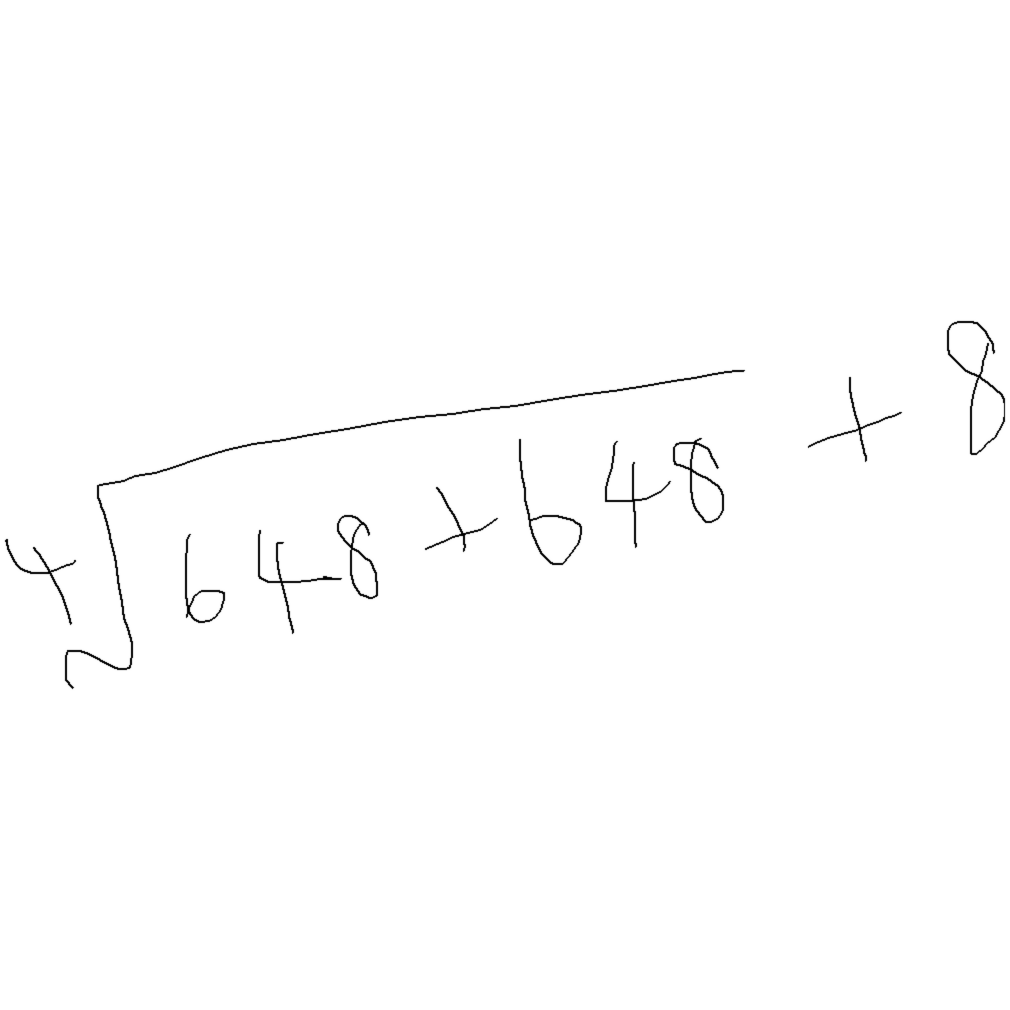 ∜(648+648) + 8